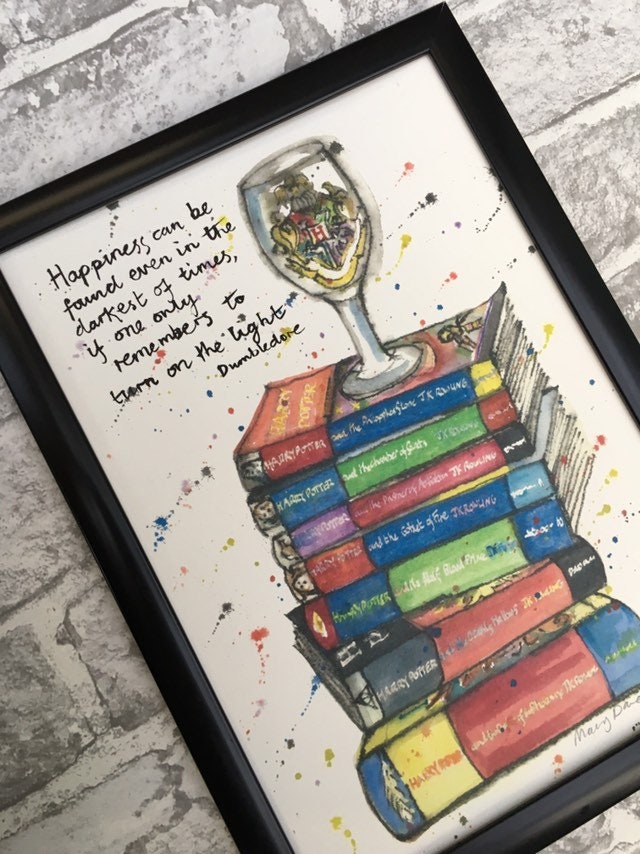 Happiness can be
found even in the
darkest of times,
if one only
remembers to
turn on the light
Dumbledore
H
HARRY
POTTER
HARRY POTTER and the Philosophers Stone J K ROWLING
HARRY POTTER and the Chamber of Secrets JK ROWLING
HARRY POTTER and the Prisoner of Azkaban JK ROWLING
HARRY POTTER and the Goblet of Fire JK ROWLING
HARRY POTTER and the Half Blood Prince
HARRY POTTER and the Deathly Hallows JK ROWLING
HARRY POTTER and the Order of the Phoenix JK Rowling
Mary